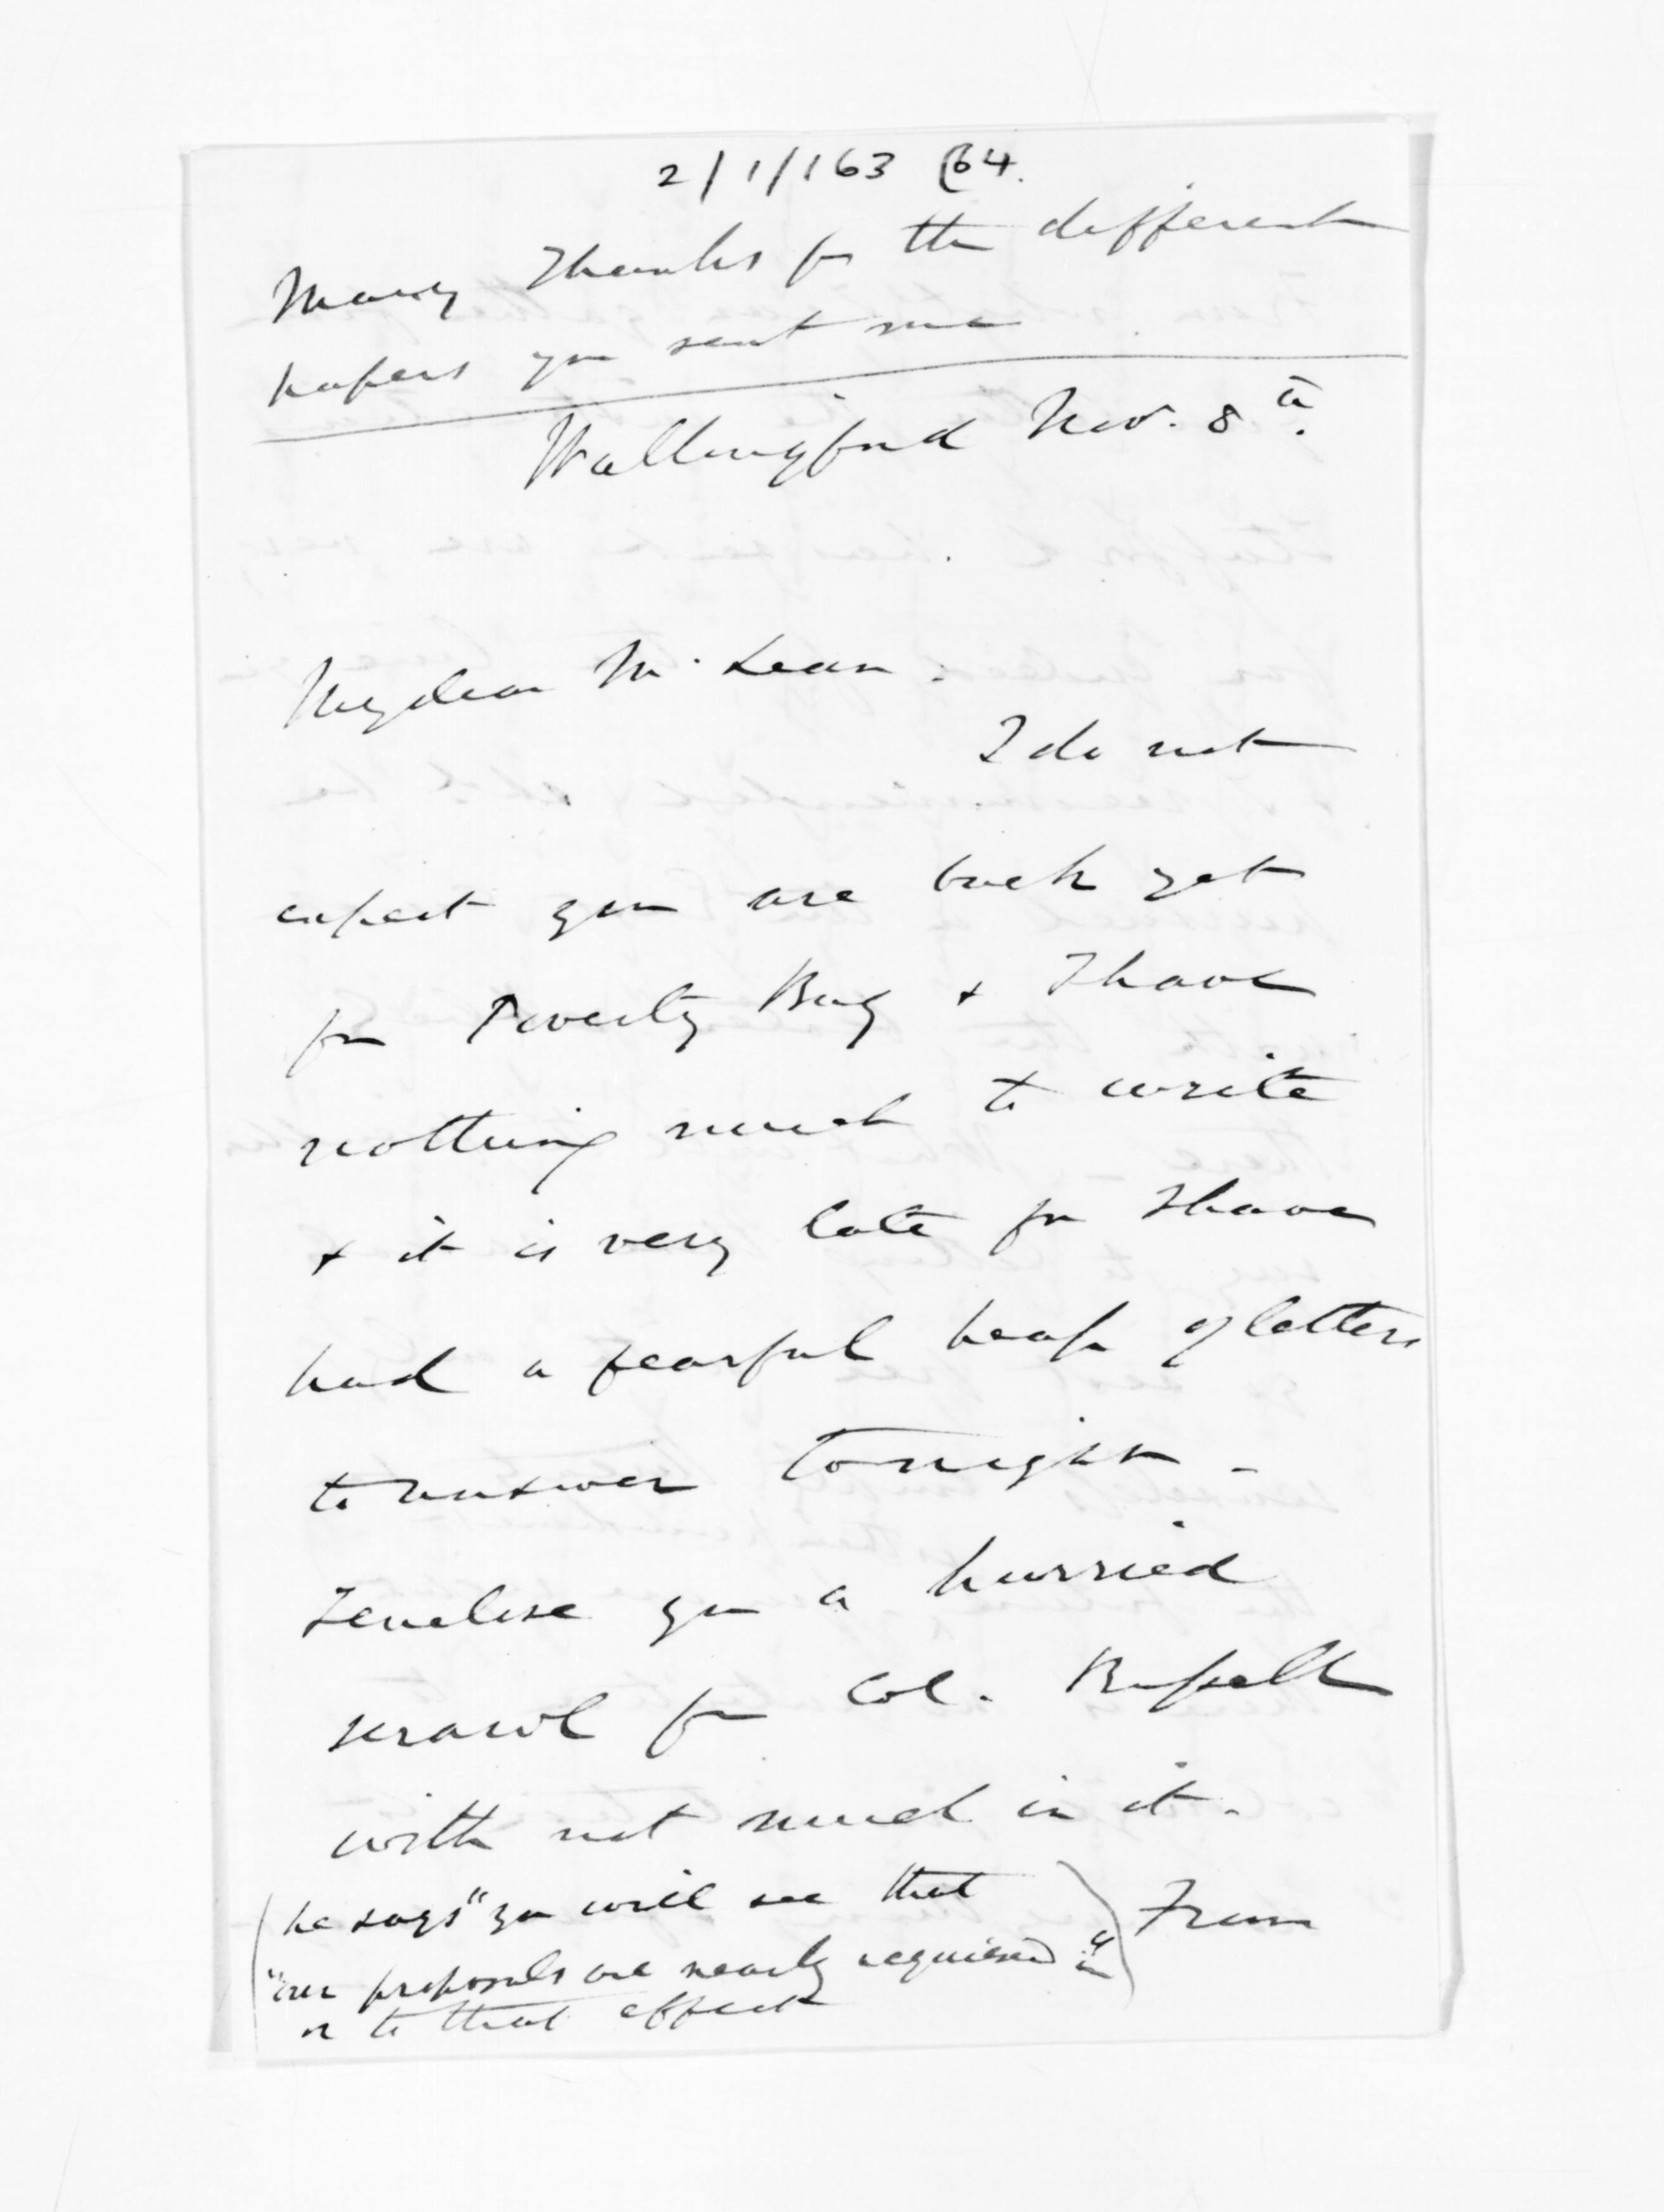 2/1/163 (64.
Many Thanks for the different
papers you sent me
Wallingford Nov. 8th.
My dear McLean.
I do not
expect you are back yet
from Poverty Bay & I have
nothing much to write
& it is very late for I have
had a fearful heap of letters
to answer tonight -
I enclose you a hurried
scrawl from Col. Russell
with not much in it.
(he says "you will see that
"our proposals are nearly acquiesced in")
or to that effect
From